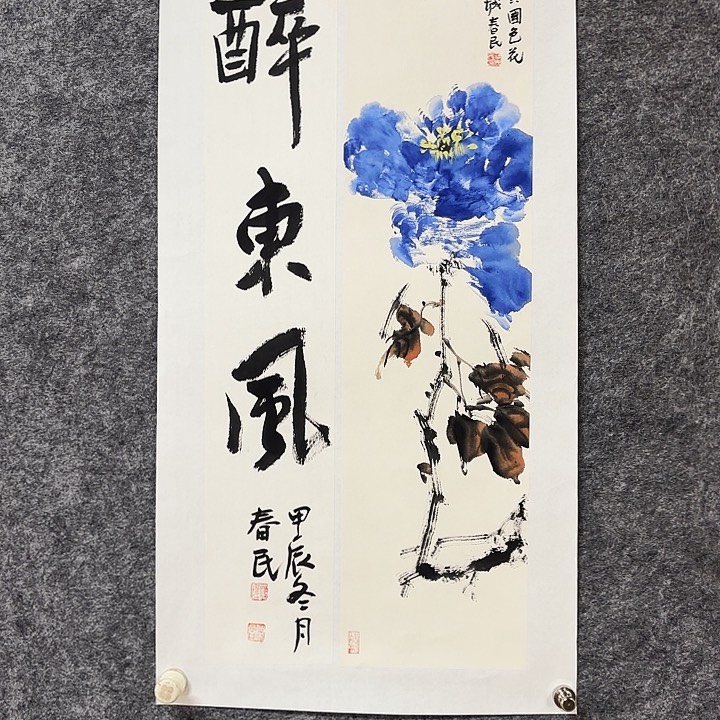 國色花
城春民
醉東風
甲辰冬月
春民